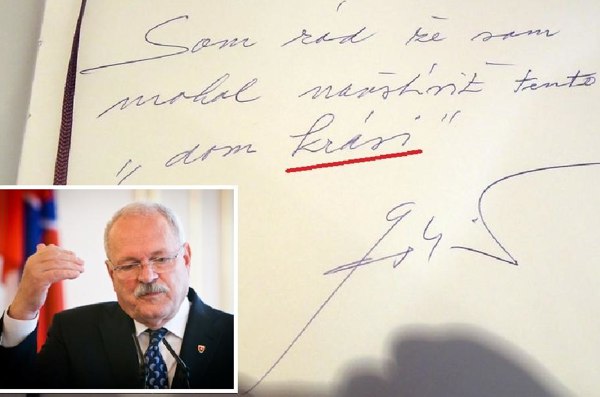 Som rád že som
mohol navštíviť tento
„dom krási“